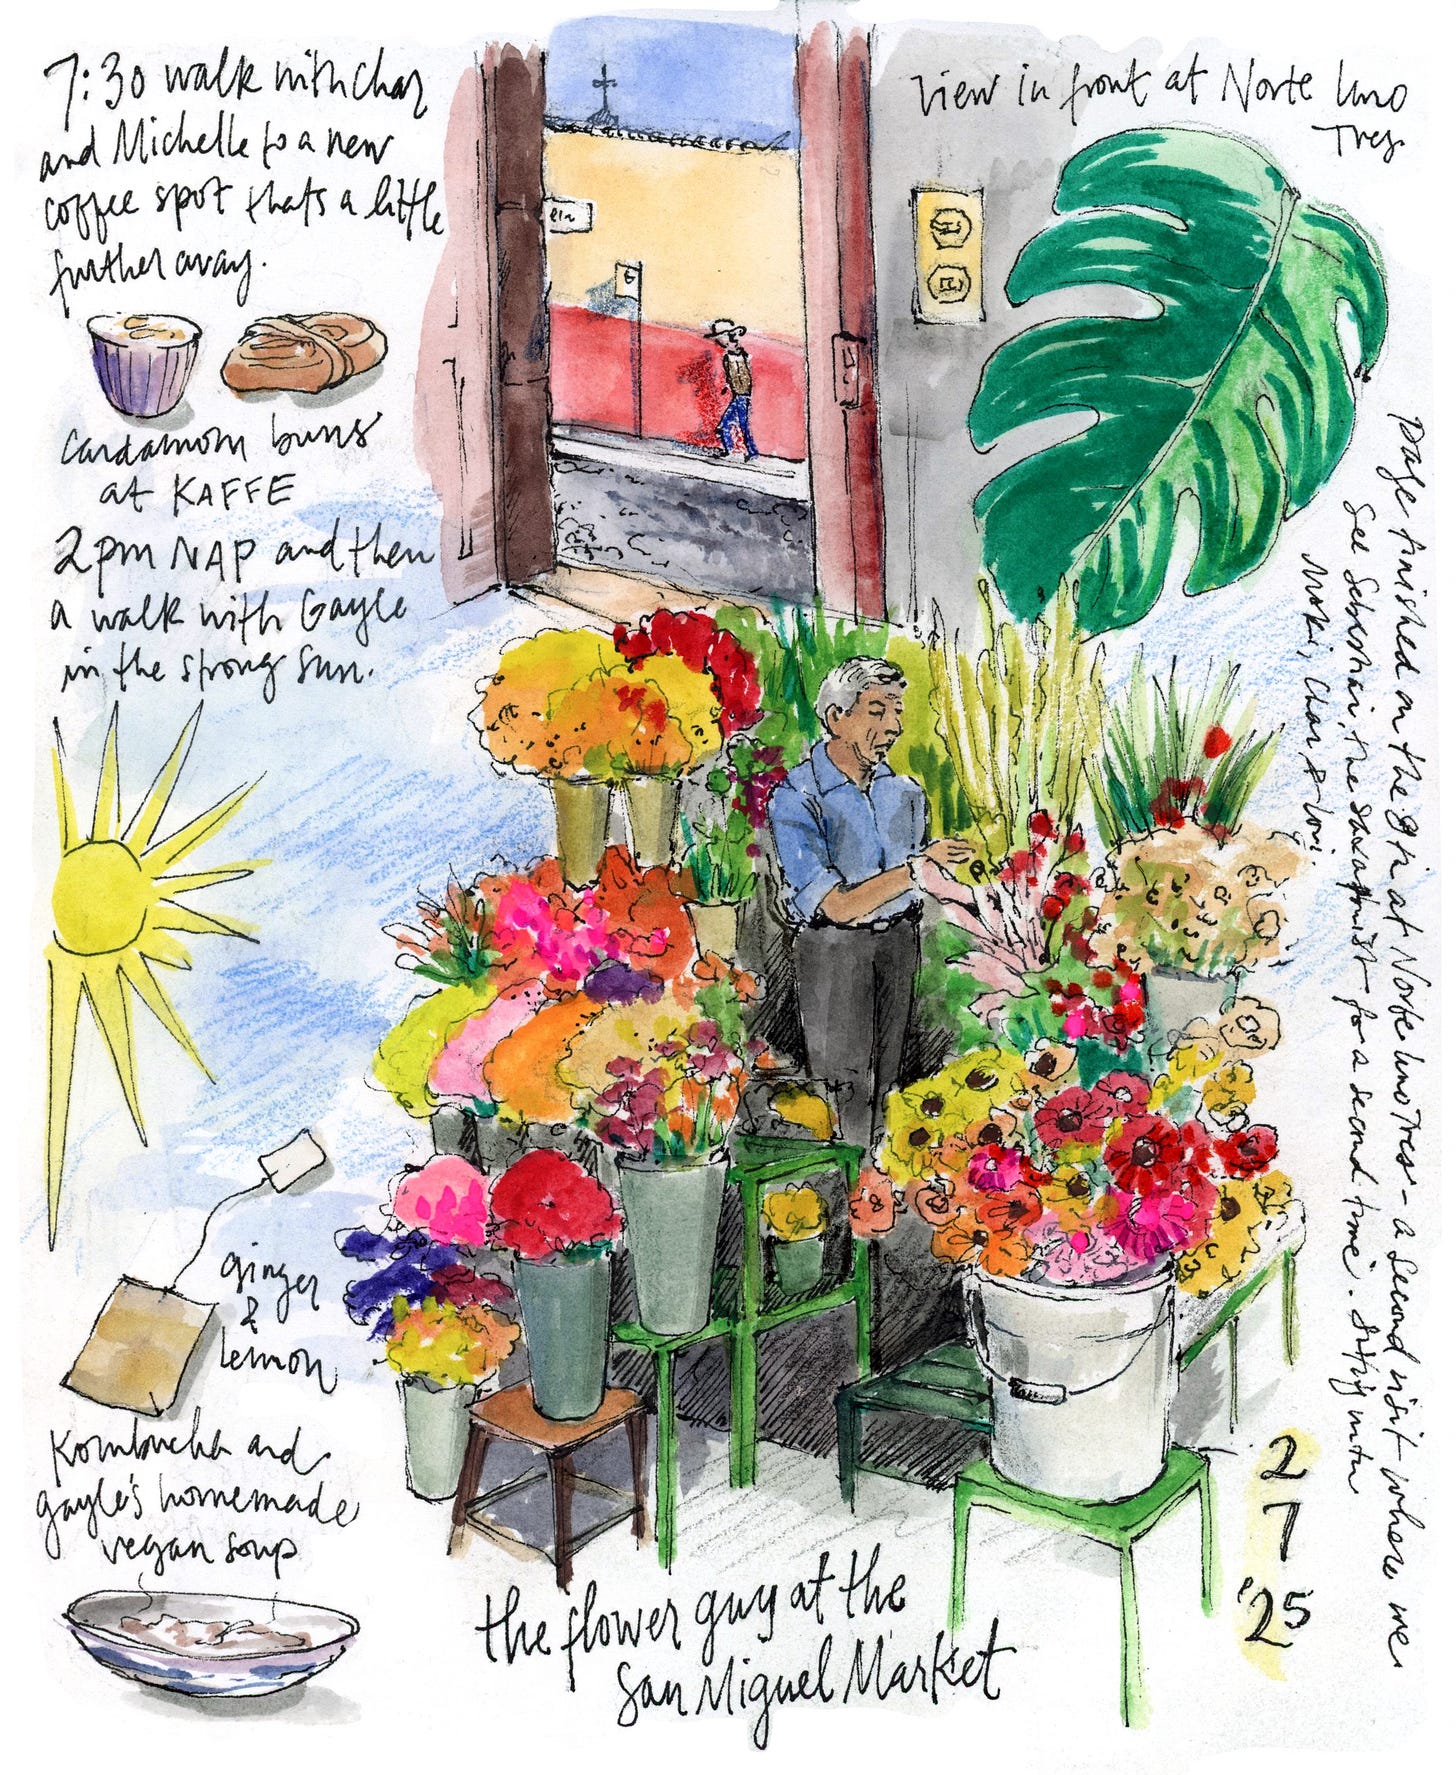 7:30 walk with Char
and Michelle to a new
coffee spot thats a little
further away.
cardamom buns
at KAFFE
2pm NAP and then
a walk with Gayle
in the strong sun.
ginger
&
lemon
Kombucha and
gayle's homemade
vegan soup
View in front at Norte Uno
Tres
page finished on the 8th at Norte Uno Tres - a second visit where we
see Sebastian, the saxaphonist for a second time. Sitting w/
Moki, Char & Lori.
the flower guy at the
San Miguel Market
2
7
'25